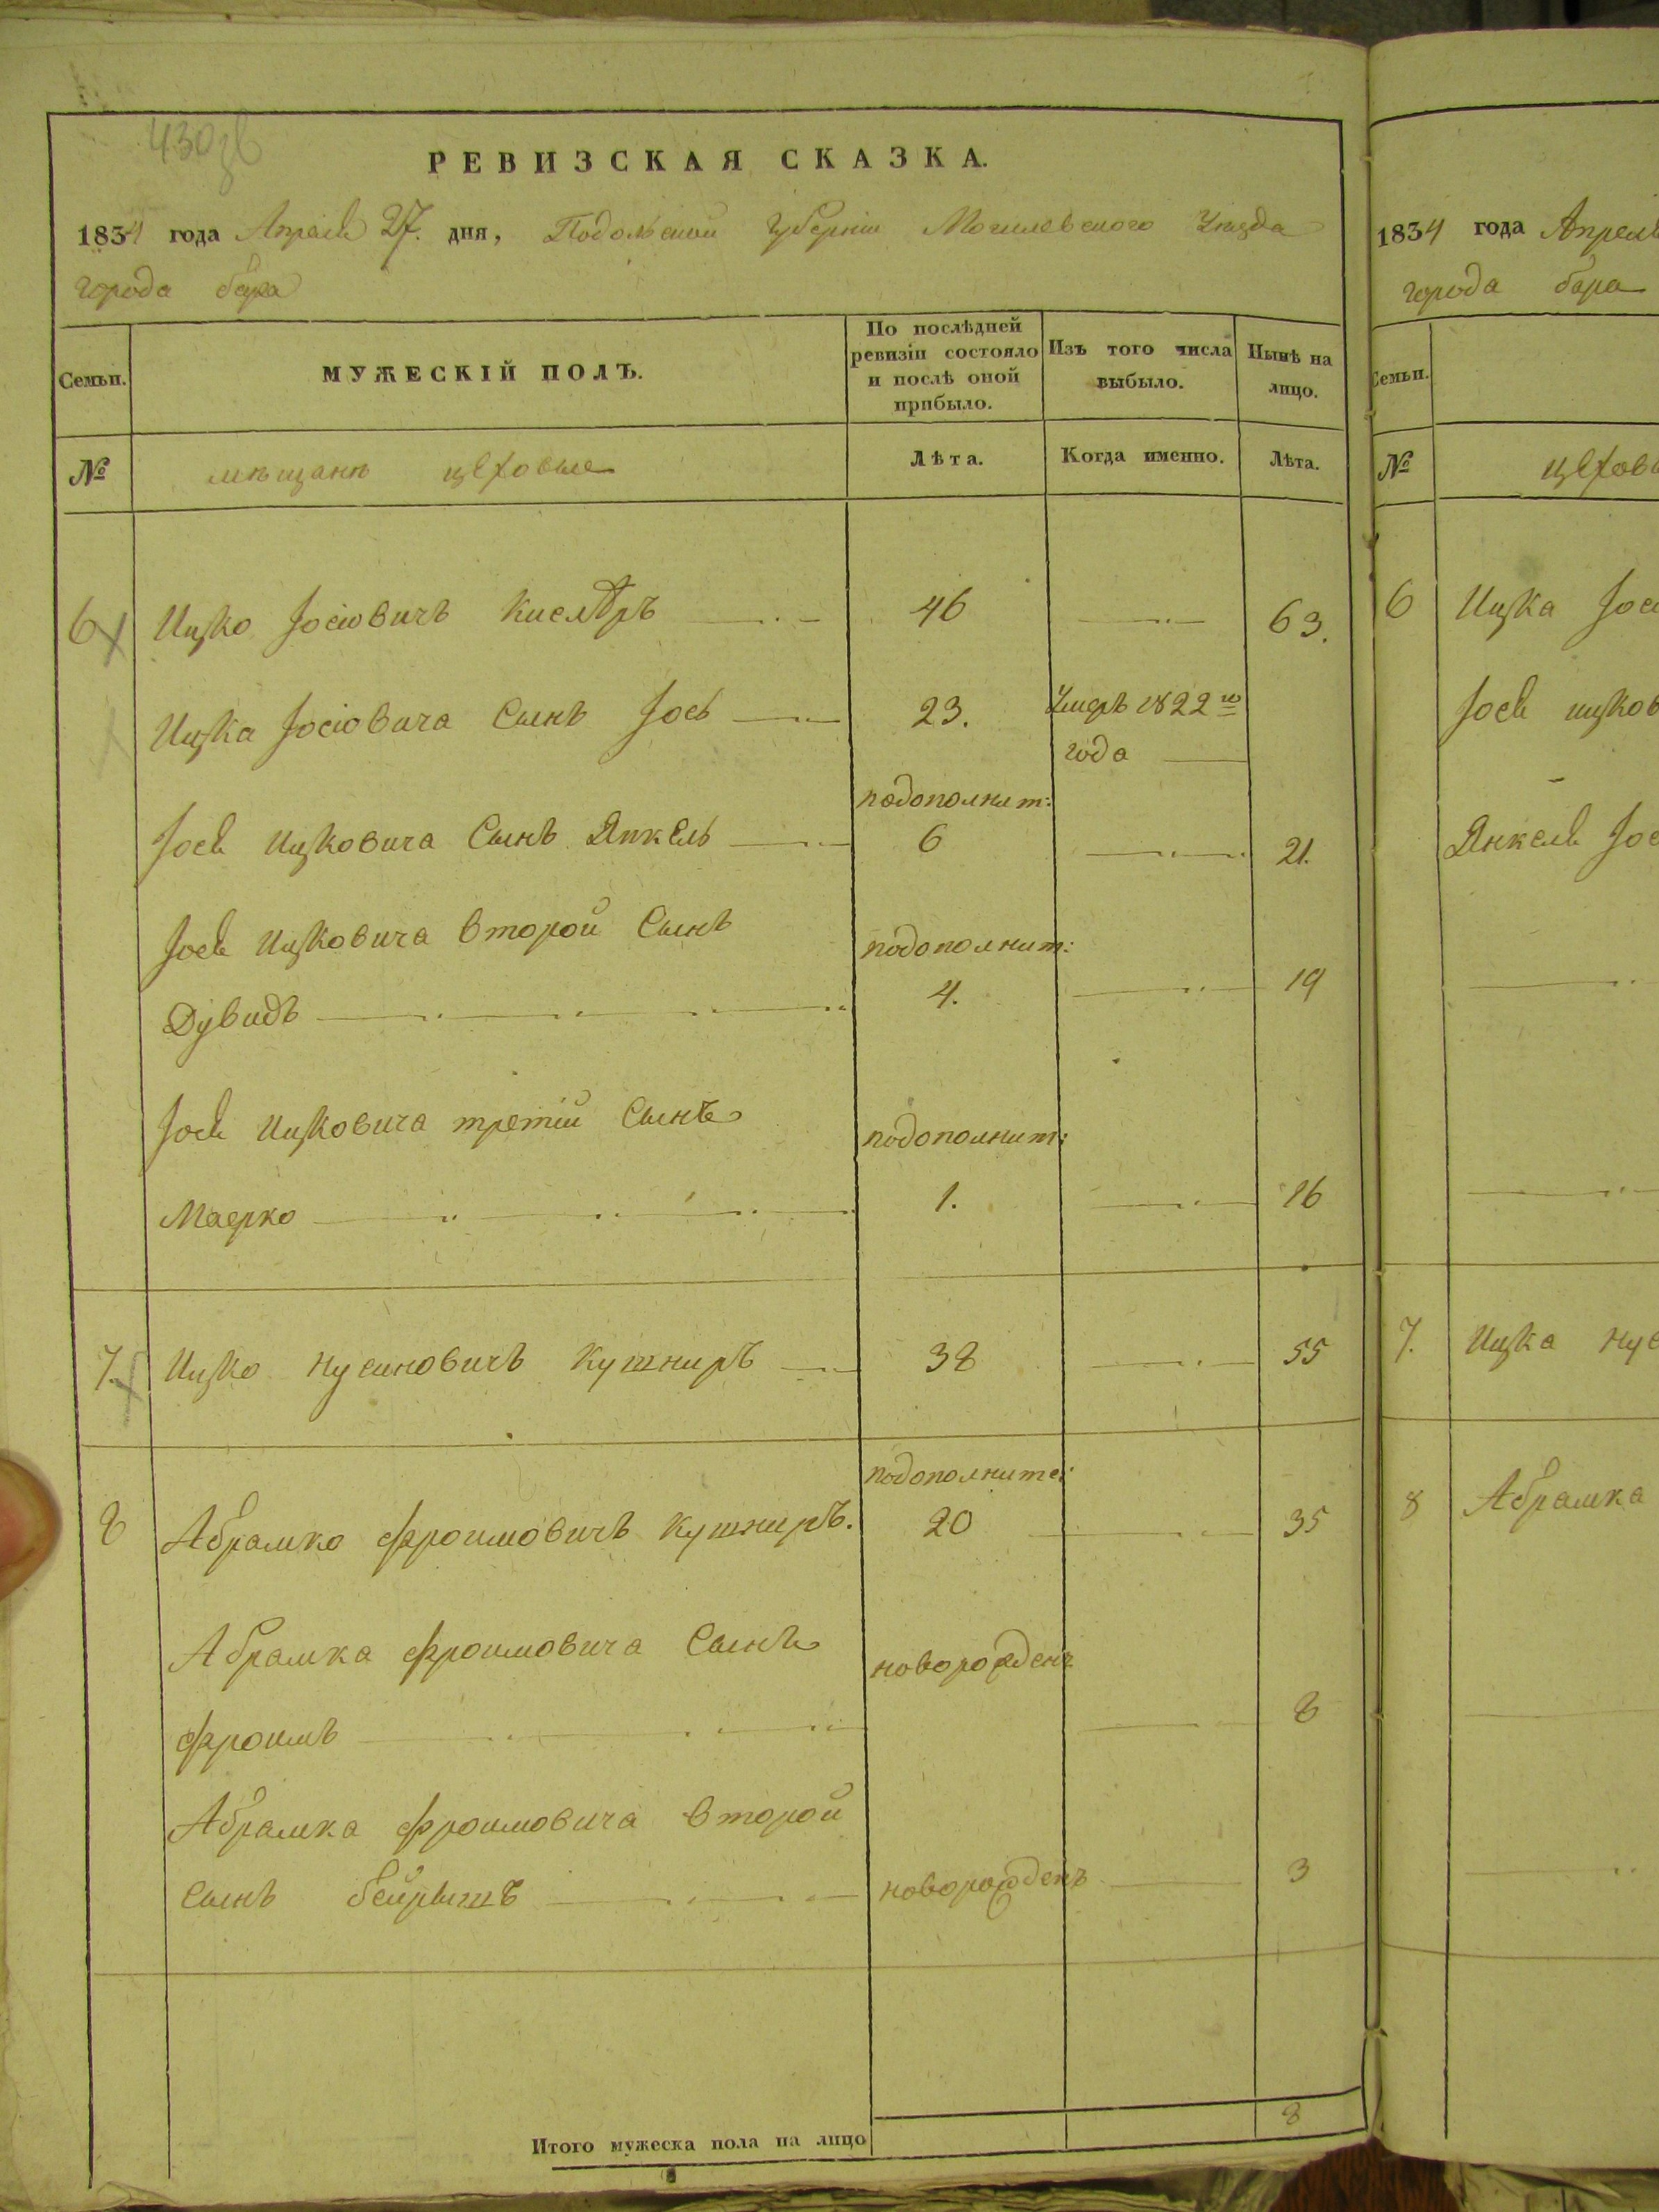 430зв
РЕВИЗСКАЯ СКАЗКА.
1834 года Апреля 27. дня, Подольской Губерніи Могилевского Уезда
города бара
Семьи.
МУЖЕСКІЙ ПОЛЪ.
По послѣдней ревизіи состояло и послѣ оной прибыло.
Изъ того числа выбыло.
Нынѣ на лицо.
№
мѣщанѣ цеховые
Лѣта.
Когда именно.
Лѣта.
6 Ицко Іосіовичъ Кислѣръ 46 63.
Ицка Іосіовича Сынъ Іось 23. Умеръ 1822го
года
подополнит:
Іося Ицковича Сынъ Янкель 6 21.
Іося Ицковича второй Сынъ
подополнит:
Дувидъ 4. 19
Іося Ицковича третій Сынъ
подополнит:
Маерко 1. 16
7. Ицко Нусиновичъ Кушниръ 38 55
подополните:
8 Абрамко Фроимовичъ Кушниръ. 20 35
Абрамка Фроимовича Сынъ
новорожденъ
Фроимъ 8
Абрамка Фроимовича второй
Сынъ бейрышъ новорожденъ 3
Итого мужеска пола на лицо 8
1834 года Апреля
города бара
Семьи.
№
цехов
6 Ицка
Іося ицков
Янкеля
7. Ицка Нус
8 Абрамка